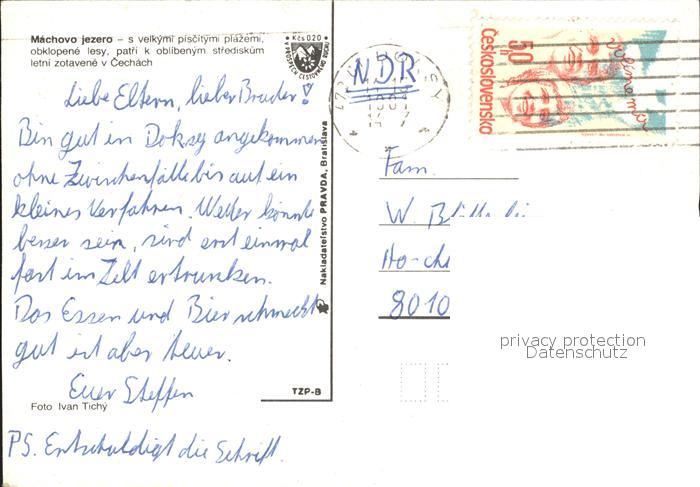 Máchovo jezero – s velkými písčitými plážemi,
obklopené lesy, patří k oblíbeným střediskům
letní zotavené v Čechách
Kčs 0,20
V PROSPĚCH CESTOVNÍHO RUCHU
NDR
50h
Československo
Liebe Eltern, lieber Bruder!
Bin gut in Doksy angekommen
ohne Zwischenfälle bis auf ein
kleines Verfahren. Wetter könnte
besser sein, sind erst einmal
fast im Zelt ertrunken.
Das Essen und Bier schmeckt
gut ist aber teuer.
Euer Steffen
Foto Ivan Tichý
PS. Entschuldigt die Schrift.
Nakladatelstvo PRAVDA, Bratislava
TZP-B
Fam.
W.
8010
privacy protection
Datenschutz